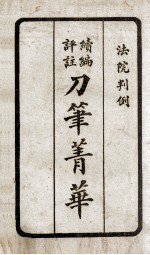 法院判例
續編
評註
刀筆菁華